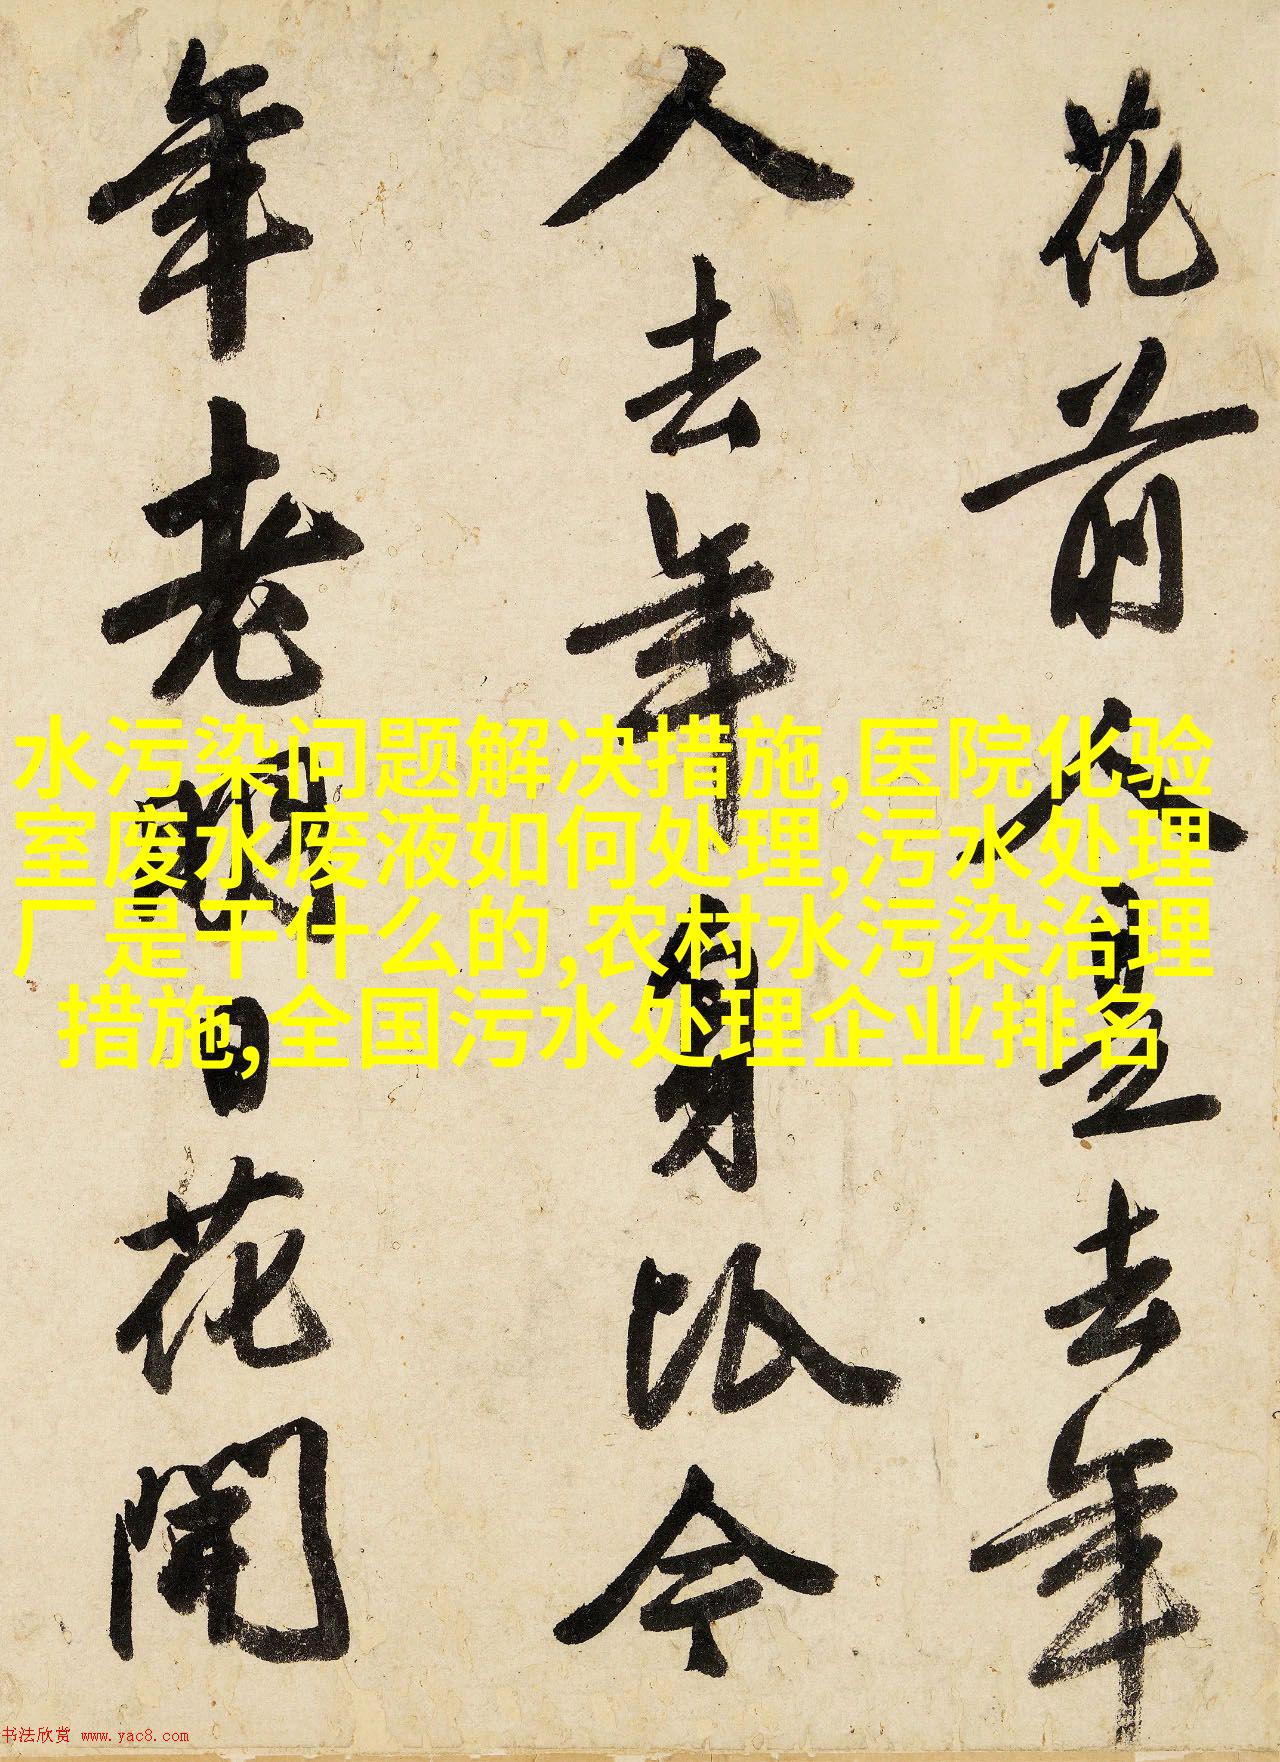 花前人是去年
人去年身比今
年老日花開
水污染问题解决措施,医院化验
室废水废液如何处理,污水处理
厂是干什么的,农村水污染治理
措施,全国污水处理企业排名
书法欣赏 www.yac8.com